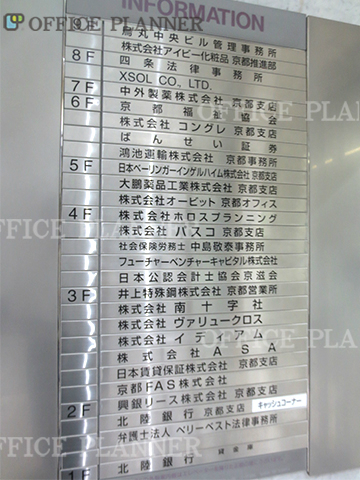 OFFICE PLANNER
INFORMATION
烏丸中央ビル管理事務所
株式会社アイビー化粧品 京都推進部
8F 四条法律事務所
XSOL CO., LTD.
7F 中外製薬株式会社 京都支店
6F 京都福祉協会
株式会社 コングレ 京都支店
ばんせい証券
鴻池運輸株式会社 京都事務所
5F 日本ベーリンガーインゲルハイム株式会社 京都支店
大鵬薬品工業株式会社 京都支店
株式会社オービット 京都オフィス
4F 株式会社 ホロスプランニング
株式会社 パスコ 京都支店
社会保険労務士 中島敬泰事務所
フューチャーベンチャーキャピタル株式会社
日本公認会計士協会京滋会
3F 井上特殊鋼株式会社 京都営業所
株式会社 南十字社
株式会社 ヴァリュークロス
株式会社 イデューアム
株式会社 ASA
日本賃貸保証株式会社 京都支店
京都FAS株式会社
興銀リース株式会社 京都支店
2F 北陸銀行 京都支店 キャッシュコーナー
弁護士法人 ベリーベスト法律事務所
北陸銀行 貸金庫
1F
OFFICE PLANNER
OFFICE PLANNER
OFFICE PLANNER
OFFICE PLANNER